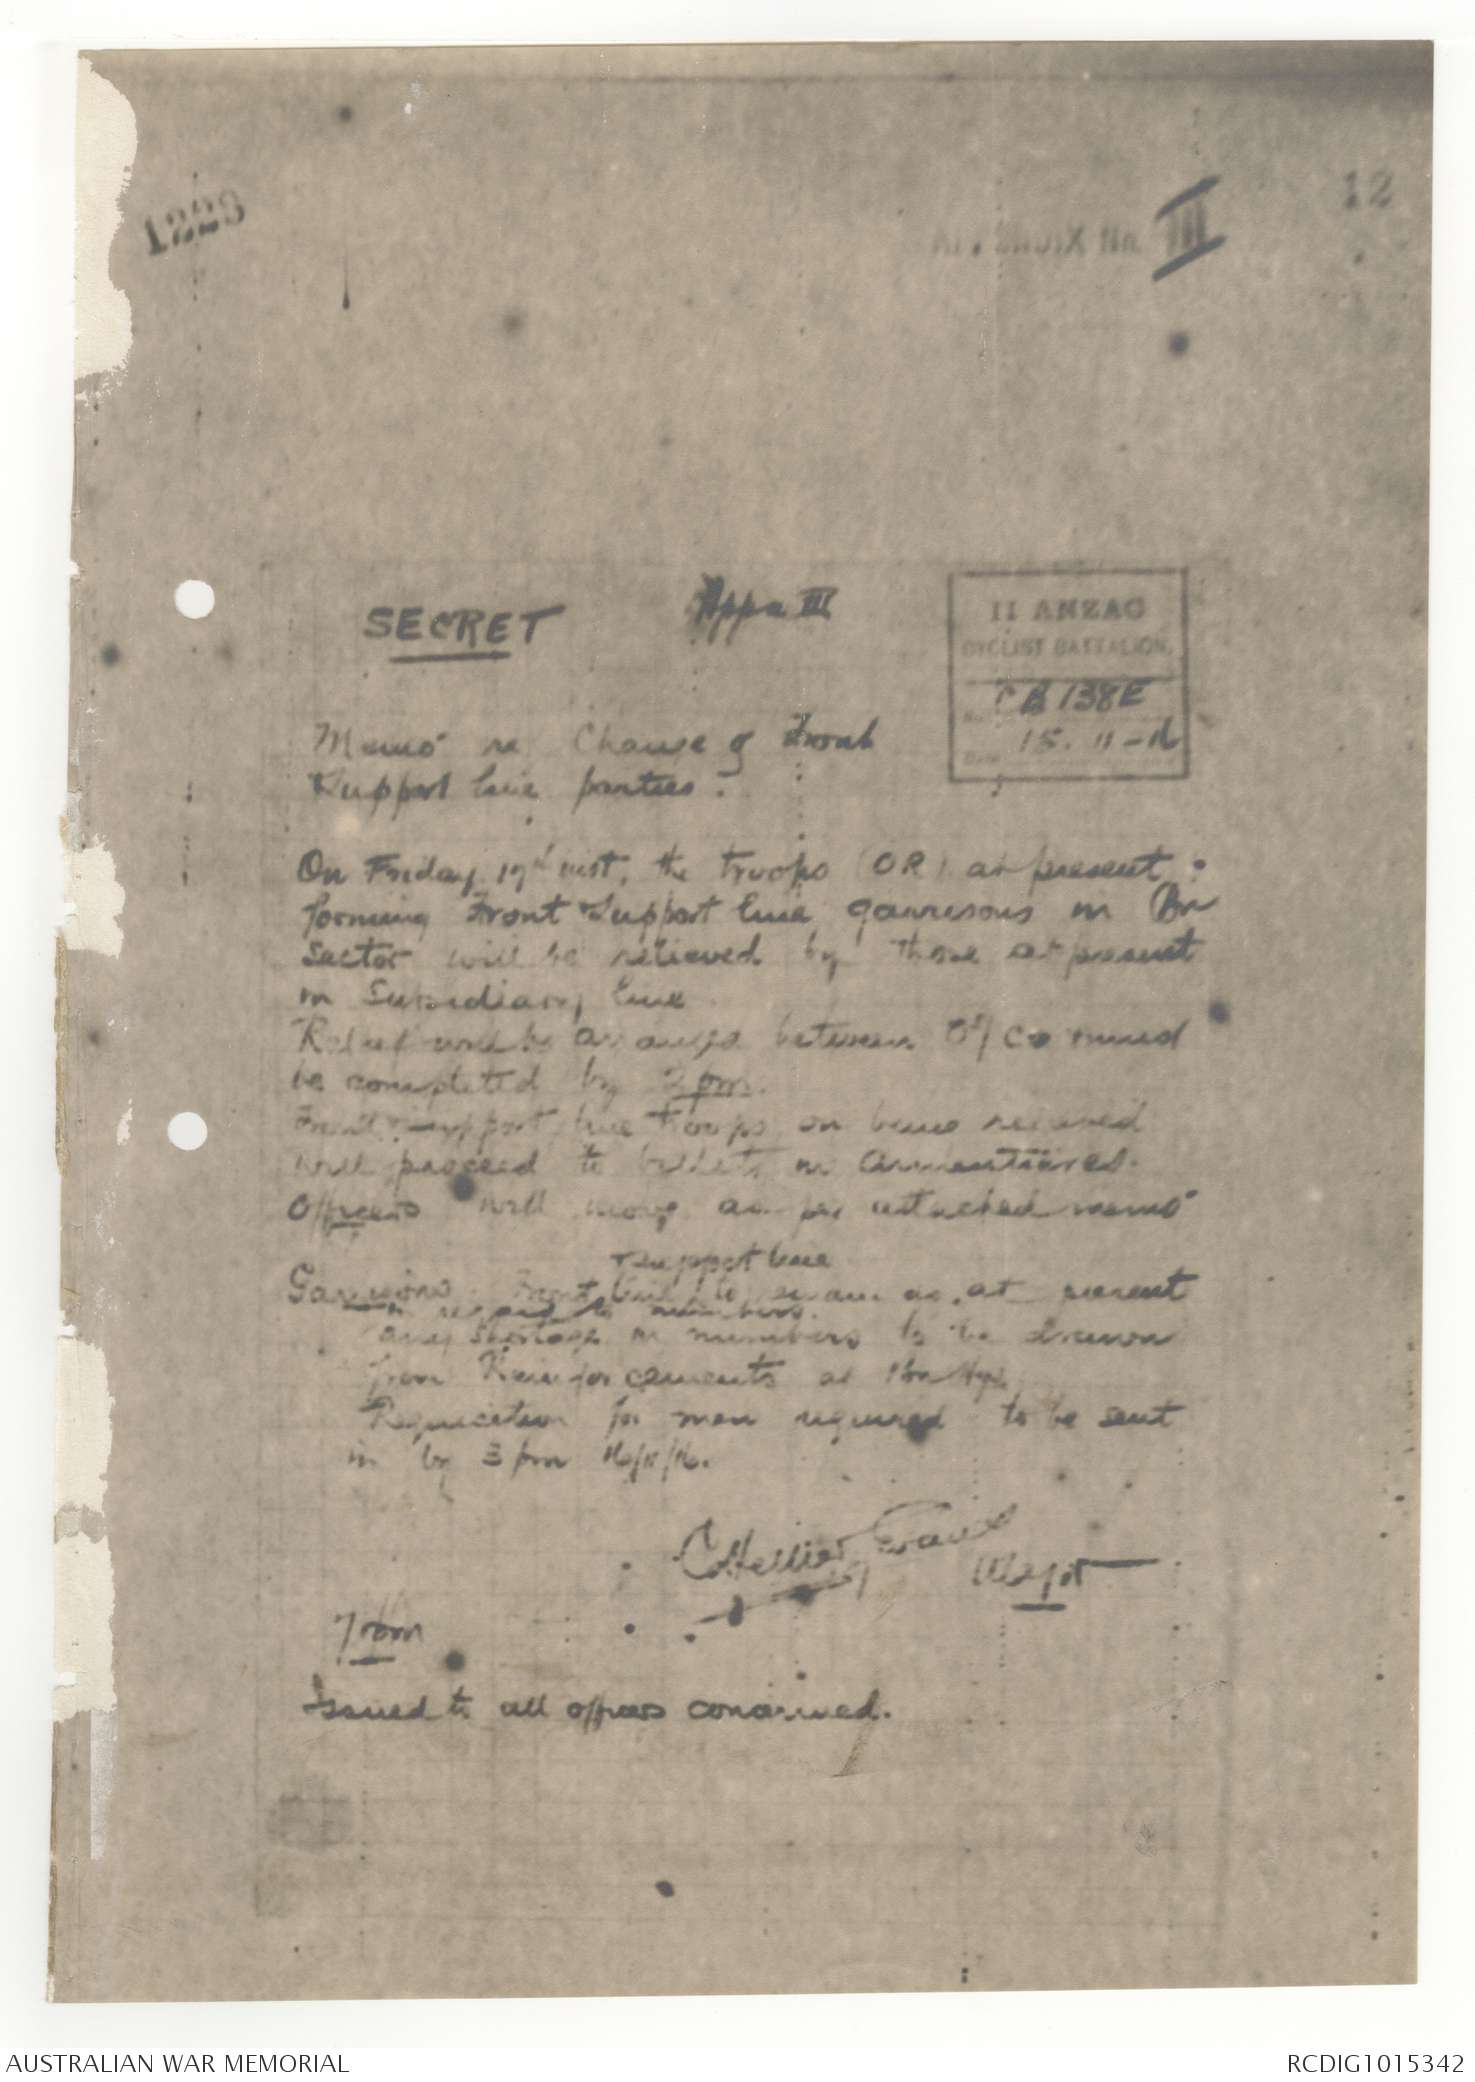 1223
12
APPENDIX No. III
SECRET
Appx III
II ANZAC
CYCLIST BATTALION.
No. CB 138E
Date 15. 11-16
Memo re Change of Front
& Support line parties.
On Friday 17th inst. the troops (OR) at present
forming Front & Support line garrisons in Bn
Sector will be relieved by those at present
in Subsidiary line
Relief will be arranged between O/C Co and
be completed by 2 pm.
Front & Support line troops on being relieved
will proceed to billets in Armentieres.
Officers will move as per attached memo
Garrisons Front line & Support line to remain as at present
in regard to numbers.
any shortage in numbers to be drawn
from Reinforcements at Bn Hqrs.
Requisition for men required to be sent
in by 3 pm 16/11/16.
C Hellier Evans
Major
7 pm
Issued to all officers concerned.
AUSTRALIAN WAR MEMORIAL
RCDIG1015342